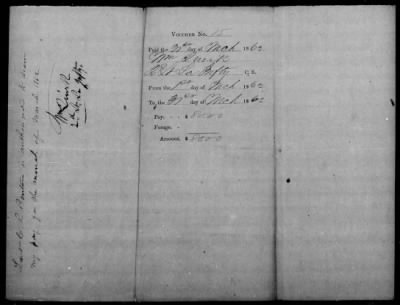 VOUCHER No. 15
Paid the 31st day of Mch 1862
Wm Quirk
C. S.
From the 1st day of Mch 1862
To the 31st day of Mch 1862
Pay, - - $ 80.00
Forage, -
Amount, $ 80.00
Wm Quirk
is authorized to draw
my pay for the month of March 1862